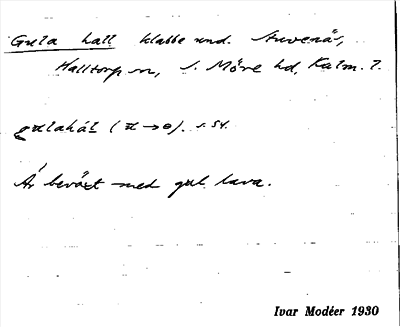 Gula hall klabbe und. Stuvenäs,
Halltorp sn, S. Möre hd, Kalm. l.
s. 54.
Är beväxt med gul lava.
Ivar Modéer 1930